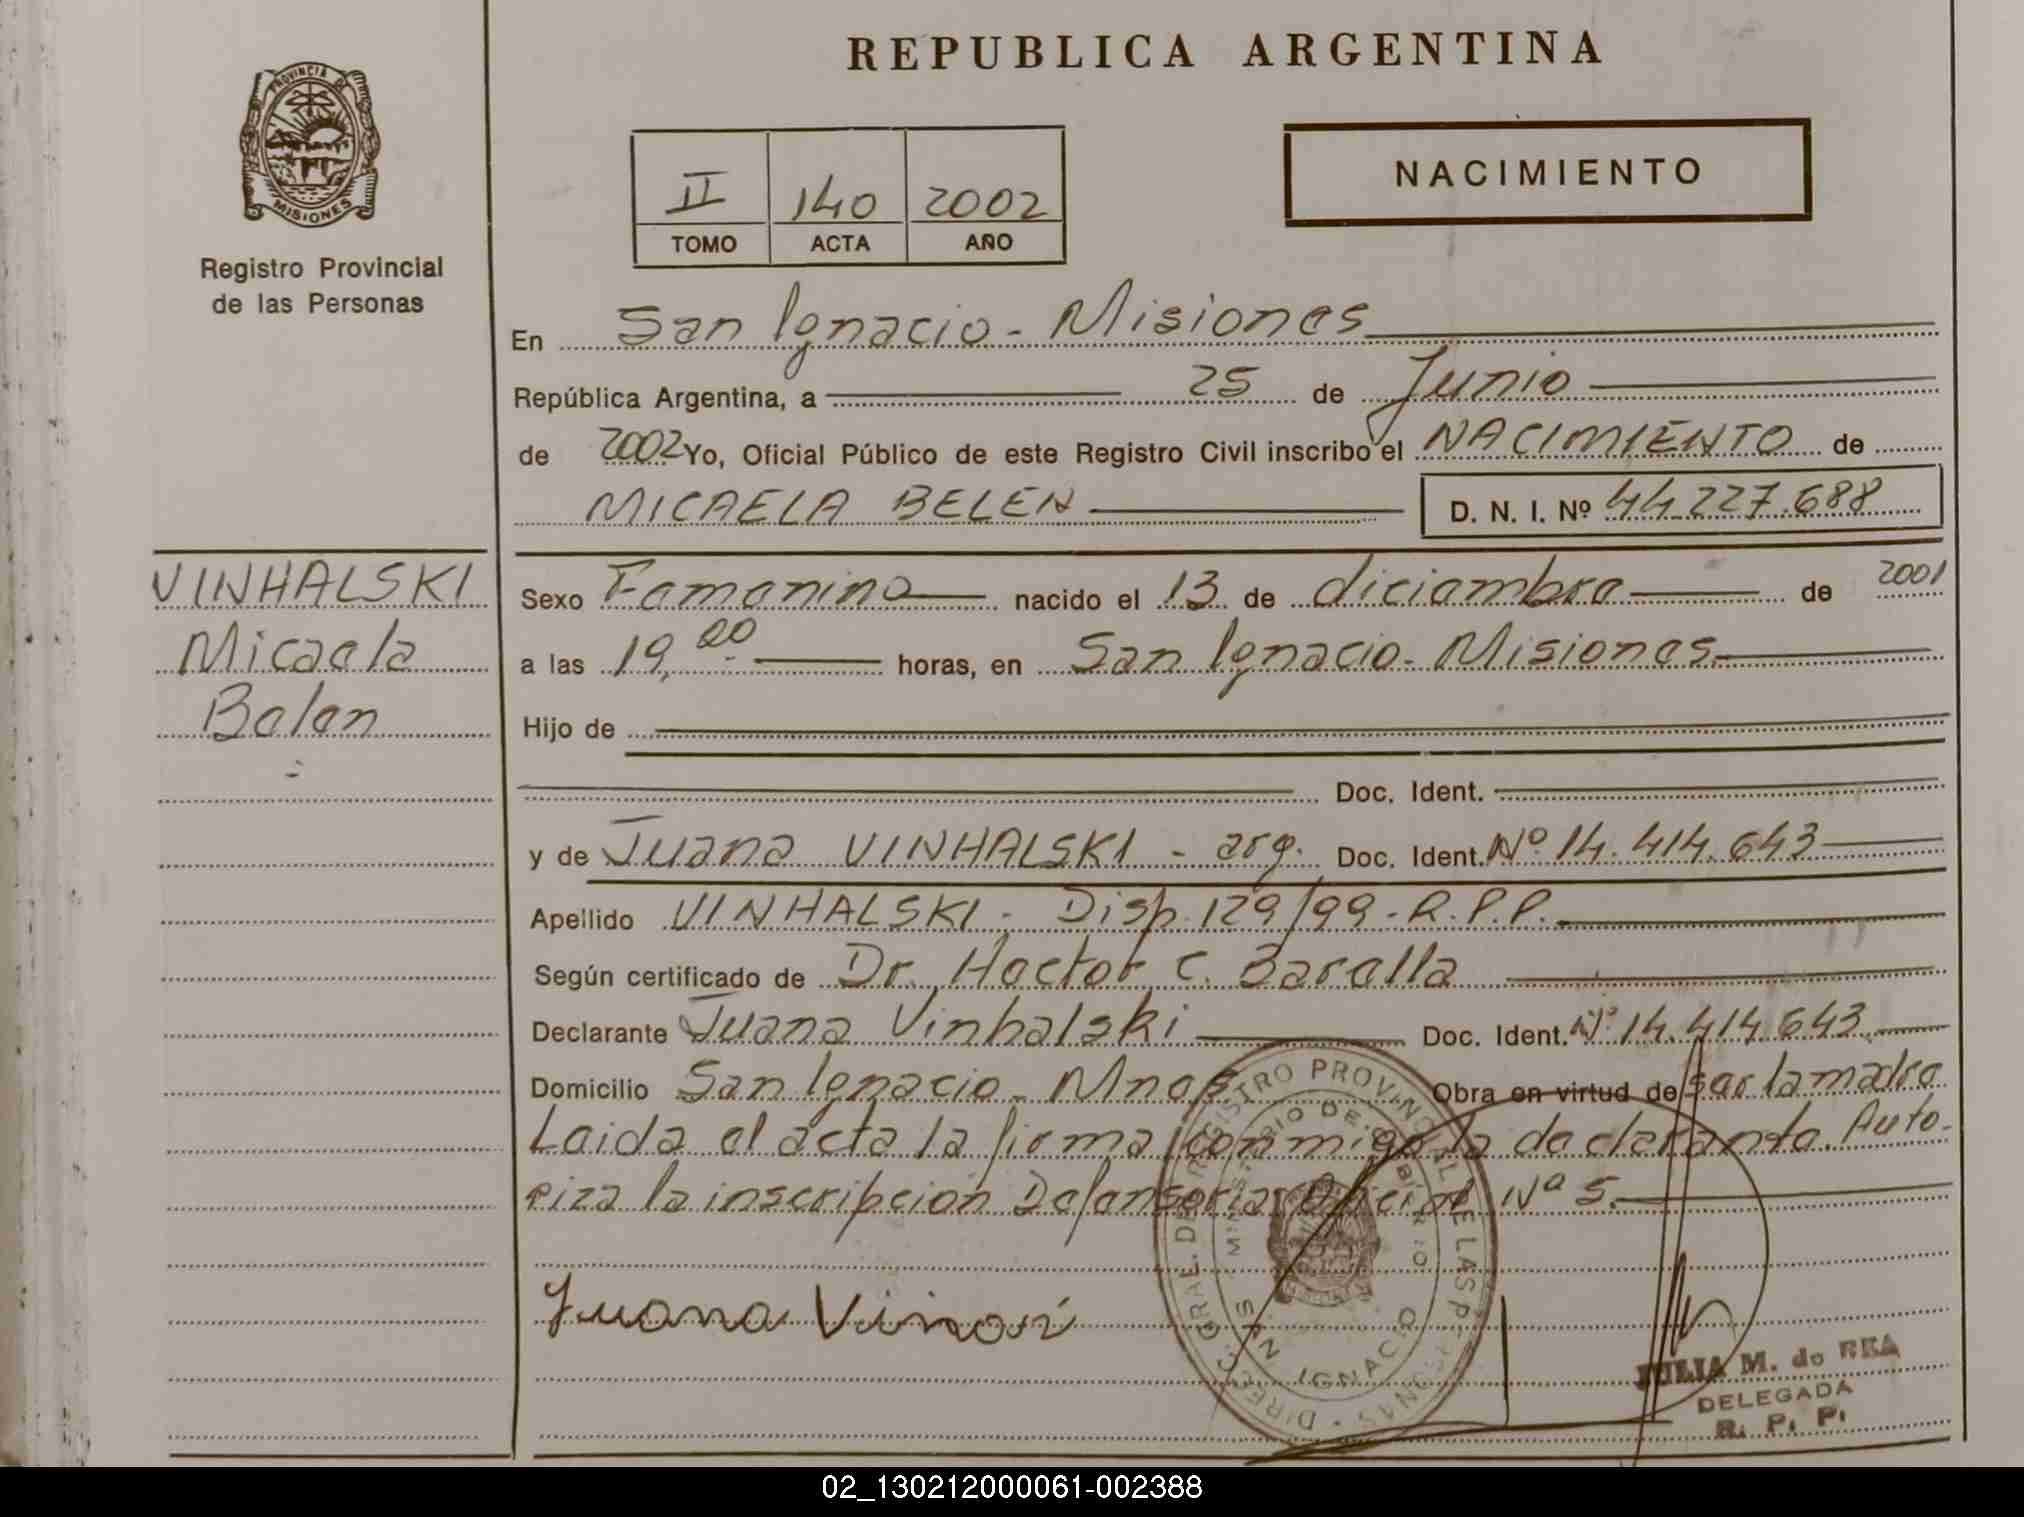 REPUBLICA ARGENTINA
PROVINCIA DE
MISIONES
Registro Provincial
de las Personas
NACIMIENTO
II 140 2002
TOMO ACTA AÑO
En San Ignacio - Misiones
República Argentina, a 25 de Junio
de 2002 Yo, Oficial Público de este Registro Civil inscribo el NACIMIENTO de
MICAELA BELEN D. N. I. Nº 44.227.688
VINHALSKI
Micaela
Belen
Sexo Femenino nacido el 13 de diciembre de 2001
a las 19,20 horas, en San Ignacio - Misiones
Hijo de
Doc. Ident.
y de Juana VINHALSKI - arg. Doc. Ident. Nº 14.414.643
Apellido VINHALSKI - Disp. 129/99 - R.P.P.
Según certificado de Dr. Hector C. Barella
Declarante Juana Vinhalski Doc. Ident. Nº 14.414.643
Domicilio San Ignacio - Mnes Obra en virtud de ser la madre
Leida el acta la firma conmigo la declarante. Auto-
riza la inscripcion Defensoria Oficial Nº 5.
Juana
DIREC. GRAL. DE REGISTRO PROVINCIAL DE LAS PERSONAS
MINISTERIO DE GOBIERNO
SAN IGNACIO
JULIA M. de REA
DELEGADA
R. P. P.
02_130212000061-002388